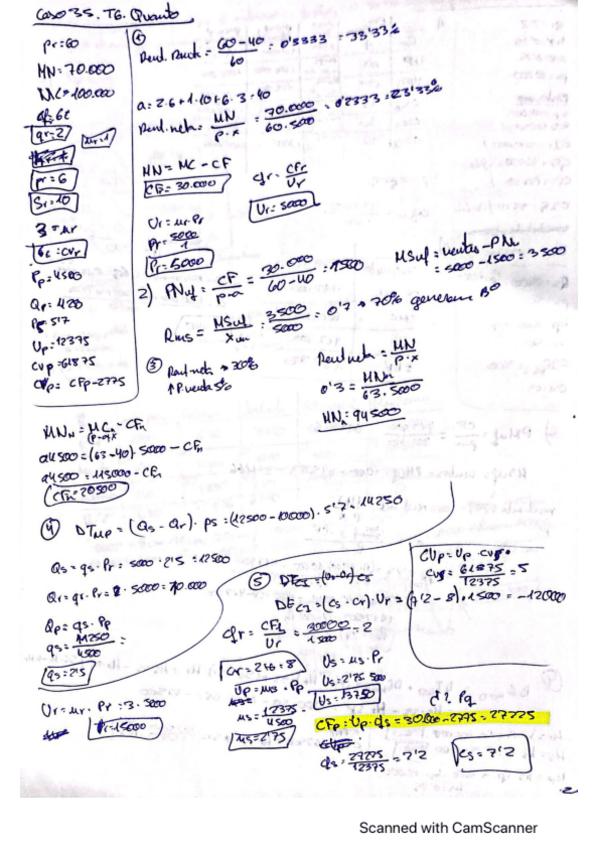 Caso 35. T6. Quanto
pr=60
MN=70.000
MC=100.000
qr=2
pr=6
Sr=10
3=ur
Pp=4500
Up=12375
Cvp=61875
Rent. = (60-40)/60 = 0'3333 = 33'33%
a=2·6+1·10+6·3=40
Rent. neta = MN/p·x = 70.000/60.5000 = 0'2333 = 23'33%
MN = MC - CF
CF=30.000
qr = CFr/Ur
Ur=5000
Ur=ur.Pr
Pr=5000/1
Pr=5000
2) = CF/p-a = 30.000/60-40 = 1500
MSuf = ventas - PNu
= 5000-1500 = 3500
Rms = MSuf/X = 3500/5000 = 0'7 → 70% generan Bº
3 Rent neta → 30%
↑ P. venta 5%
Rent neta = MN/p·x
0'3 = MNn/63.5000
MNn=94500
MNn = MCn - CFn
(p-a)x
94500=(63-40)·5000-CFn
94500=115000-CFn
CFn=20500
4 DTMP = (Qs-Qr)·ps = (12500-10000)·5'7=14250
Qs=qs·Pr=5000·2'5=12500
Qr=qr·Pr=2·5000=10.000
Qp=qs·Pp
qs=11250/4500=
qs=2'5
Ur=ur·Pr=3·5000
Ur=15000
5
DEC1=(Cs-Cr)·Ur=(7'2-8)·1500=-12000
Cvp=Up·
61875/12375=5
qr=CF1/Ur=30000/1500=2
Cr=2+6=8
Up=us·Pp
us=12375/4500
us=2'75
Us=us·Pr
Us=2'75·5000
Us=13750
CFp=Up·qs=30.000-2775=27225
qs=27225/12375=2'2
Cs=7'2
Scanned with CamScanner